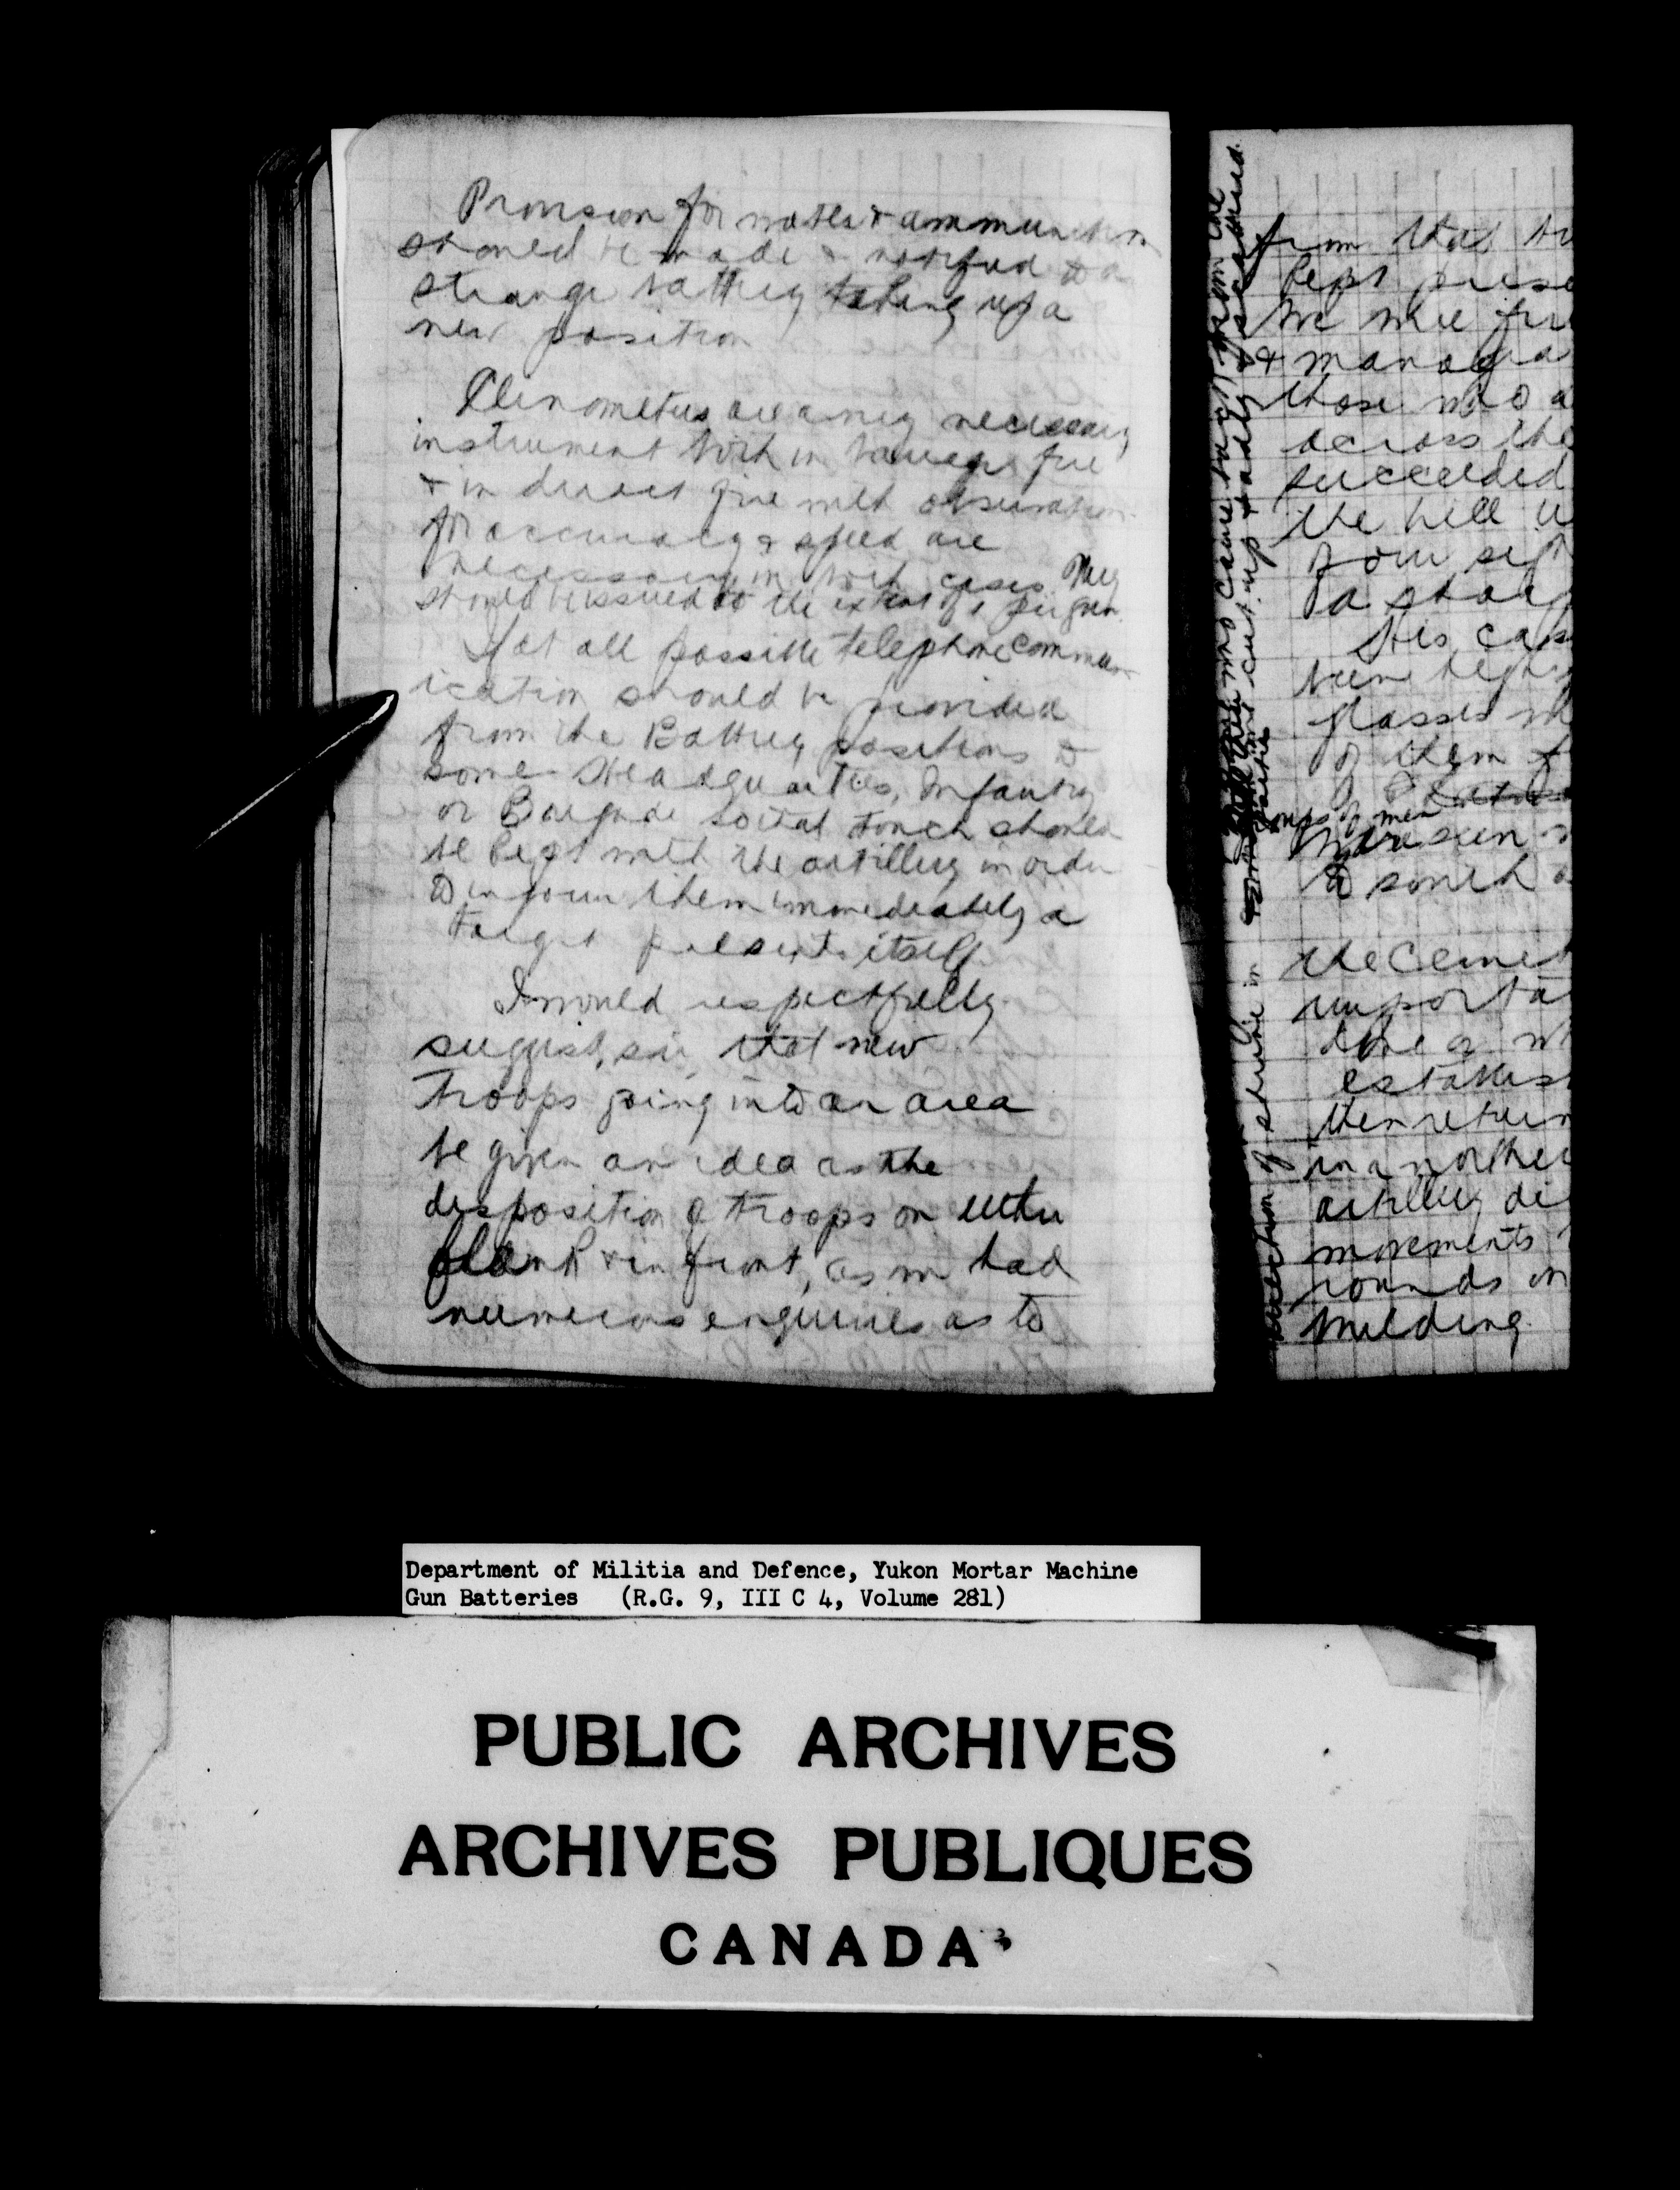 Provision for water & ammunition
should be made & notified to a
strange battery taking up a
new position
Clinometers are a very necessary
instrument both in barrage fire
& in direct fire with observation
for accuracy & speed are
necessary in both cases. They
should be issued to the extent of 1 per gun.
If at all possible telephone commun-
ication should be provided
from the Battery positions to
some Headquarters, Infantry
or Brigade so that touch should
be kept with the artillery in order
to inform them immediately a
target presents itself.
I would respectfully
suggest, sir, that new
troops going into an area
be given an idea as the
disposition of troops on either
flank & in front, as we had
numerous enquiries as to
from that
kept
we were
& manag
those who a
across the
succeeded
the hill
of our
a sharp
His cas
been
glasses
of them
groups of men
were seen
to south
the Cemet
importa
establis
then return
in a norther
artillery di
movements
rounds in
building.
direction of
Department of Militia and Defence, Yukon Mortar Machine
Gun Batteries (R.G. 9, III C 4, Volume 281)
PUBLIC ARCHIVES
ARCHIVES PUBLIQUES
CANADA